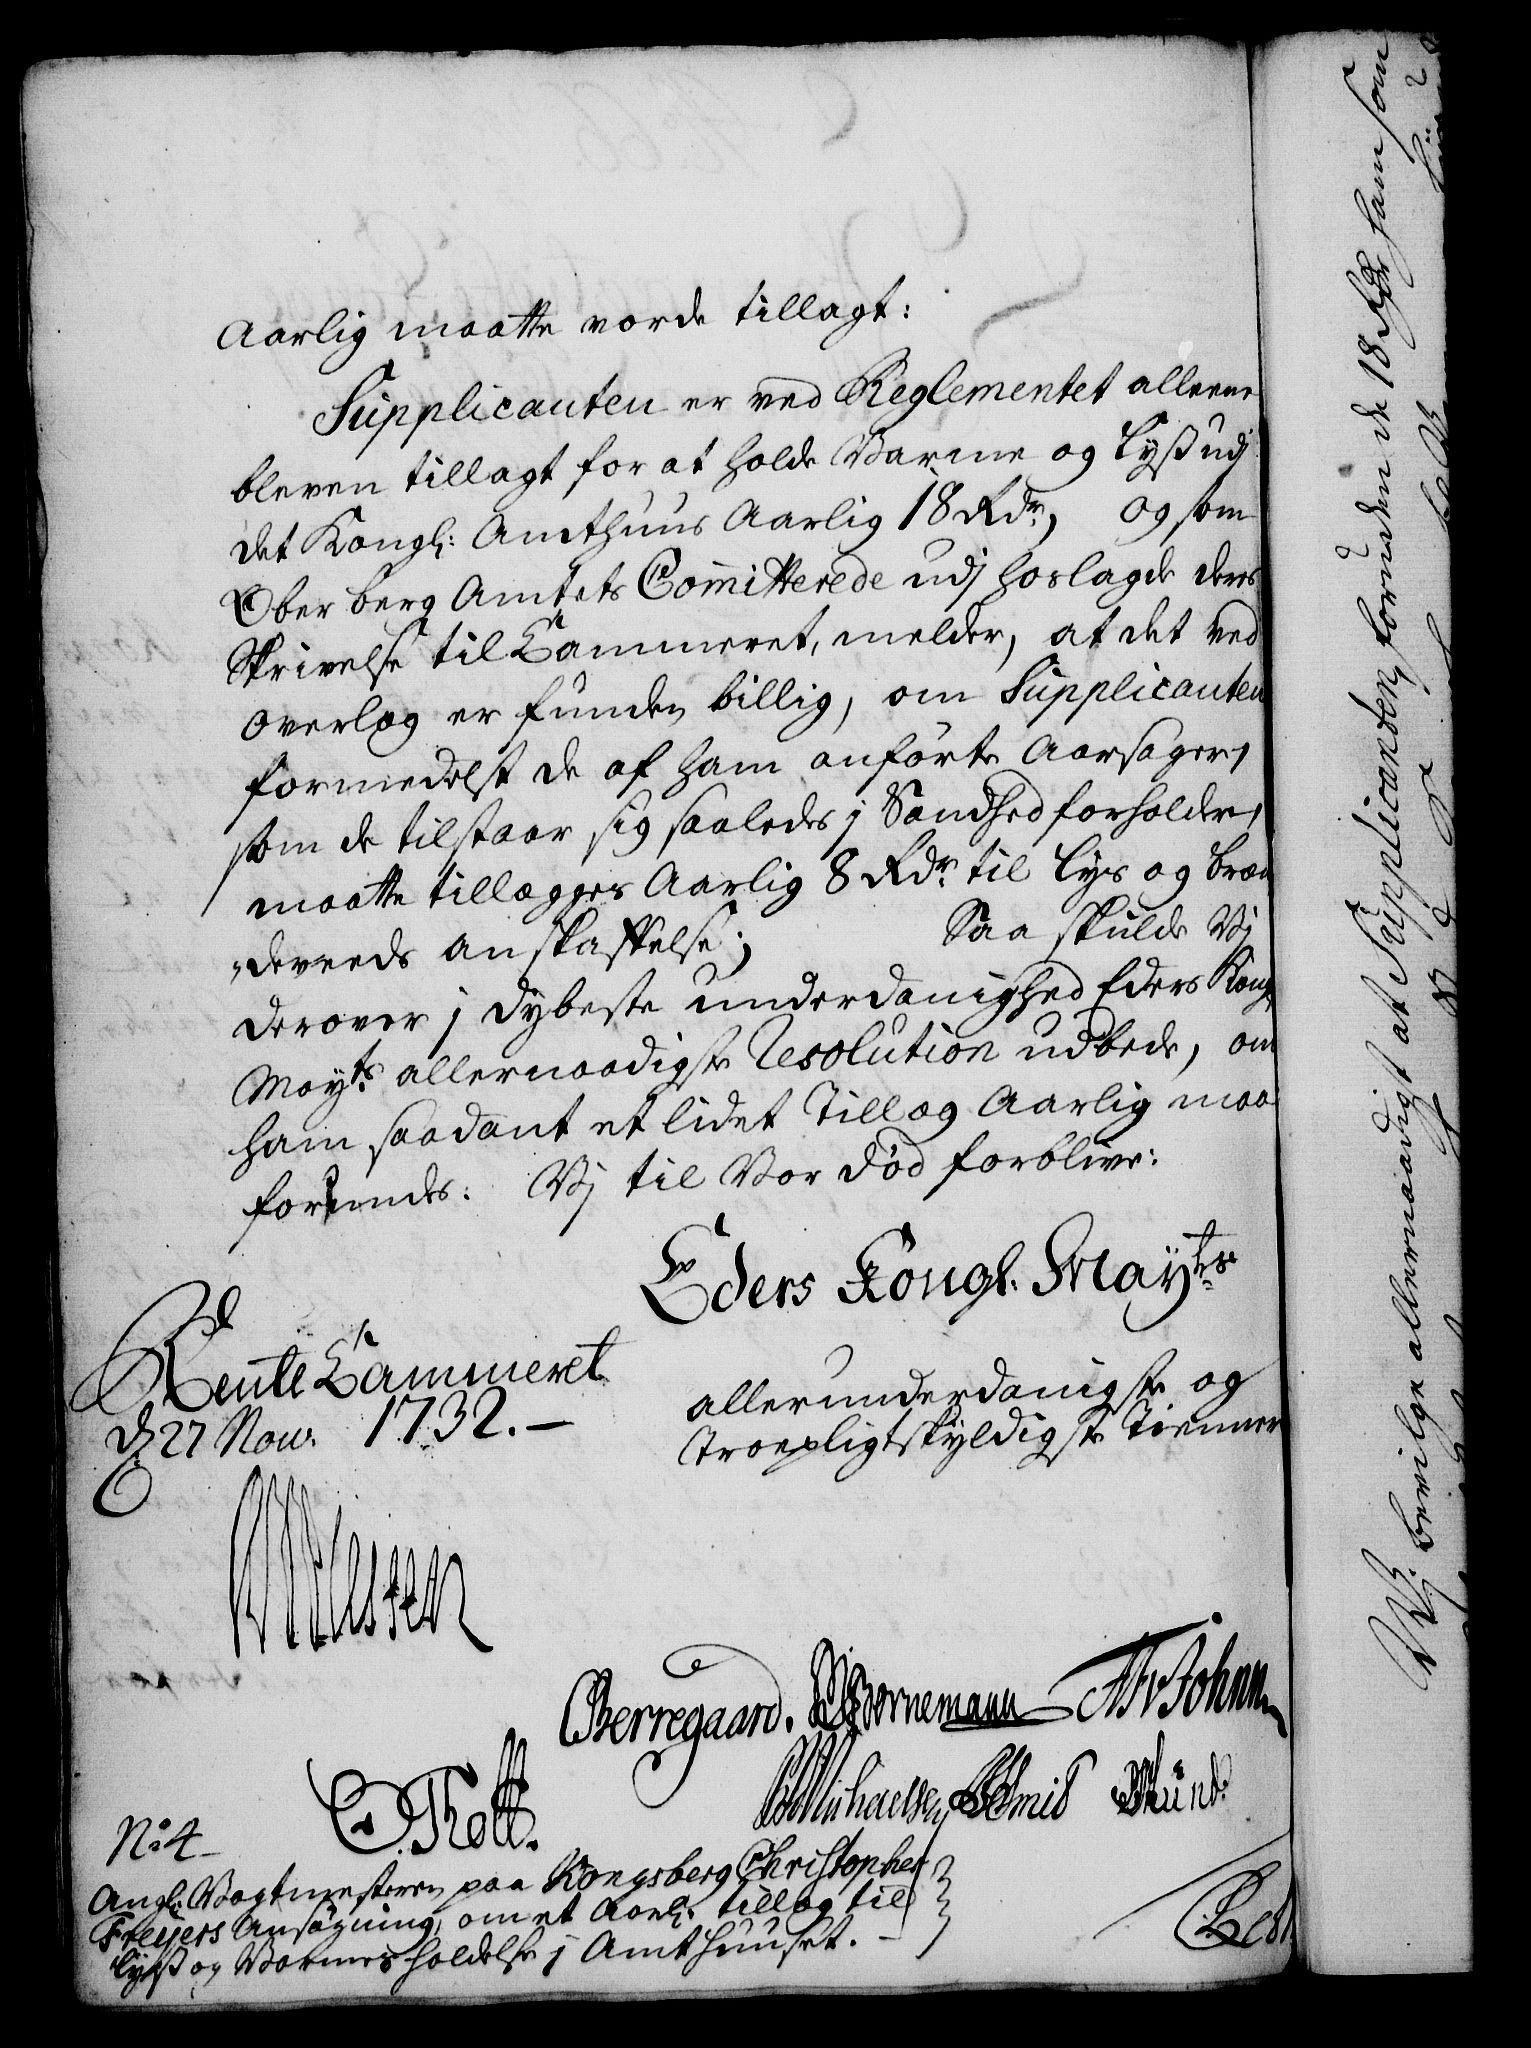 Aarlig maatte vorde tillagt:
Supplicanten er ved Reglementet alleene
bleven tillagt for at holde Varme og Lyß udj
det Kongl: Amthuus Aarlig 18 Rdr, og som
Ober berg Amtets Committerede udj hoslagde deres
Skrivelse til Cammeret, melder, at det ved
overlæg er funden billig, om Supplicanten
formedelst de af ham anførte Aarsager,
som de tilstaar sig saaledes j Sandhed forholder,
maatte tillægges Aarlig 8 Rdr til Lys og Bræn
deveeds anskaffelse; Saa skulde Vj
derover j dybeste underdanighed Eders Kongl
Mayts allernaadigste Resolution udbede, om
ham saadant et lidet Tillæg Aarlig maa
forundes: Vj til Vor død forblive:
Eders Kongl. Mayts
Rente Cammeret
d 27 Nov. 1732. —
allerunderdanigste og
Troepligtskyldigste Tienner
CBerregaard. Bornemann
COThott. Michaelsen Smid
No 4
Angl: Vagtmesteren paa Kongsberg Christopher
Freyers Ansøgning, om et Aarl: tillæg til
Lyß og Varmes holdelse j Amthuuset. —
Vj bevilge allernaadigst at Supplicanten, foruden de 18 Rdr ham som